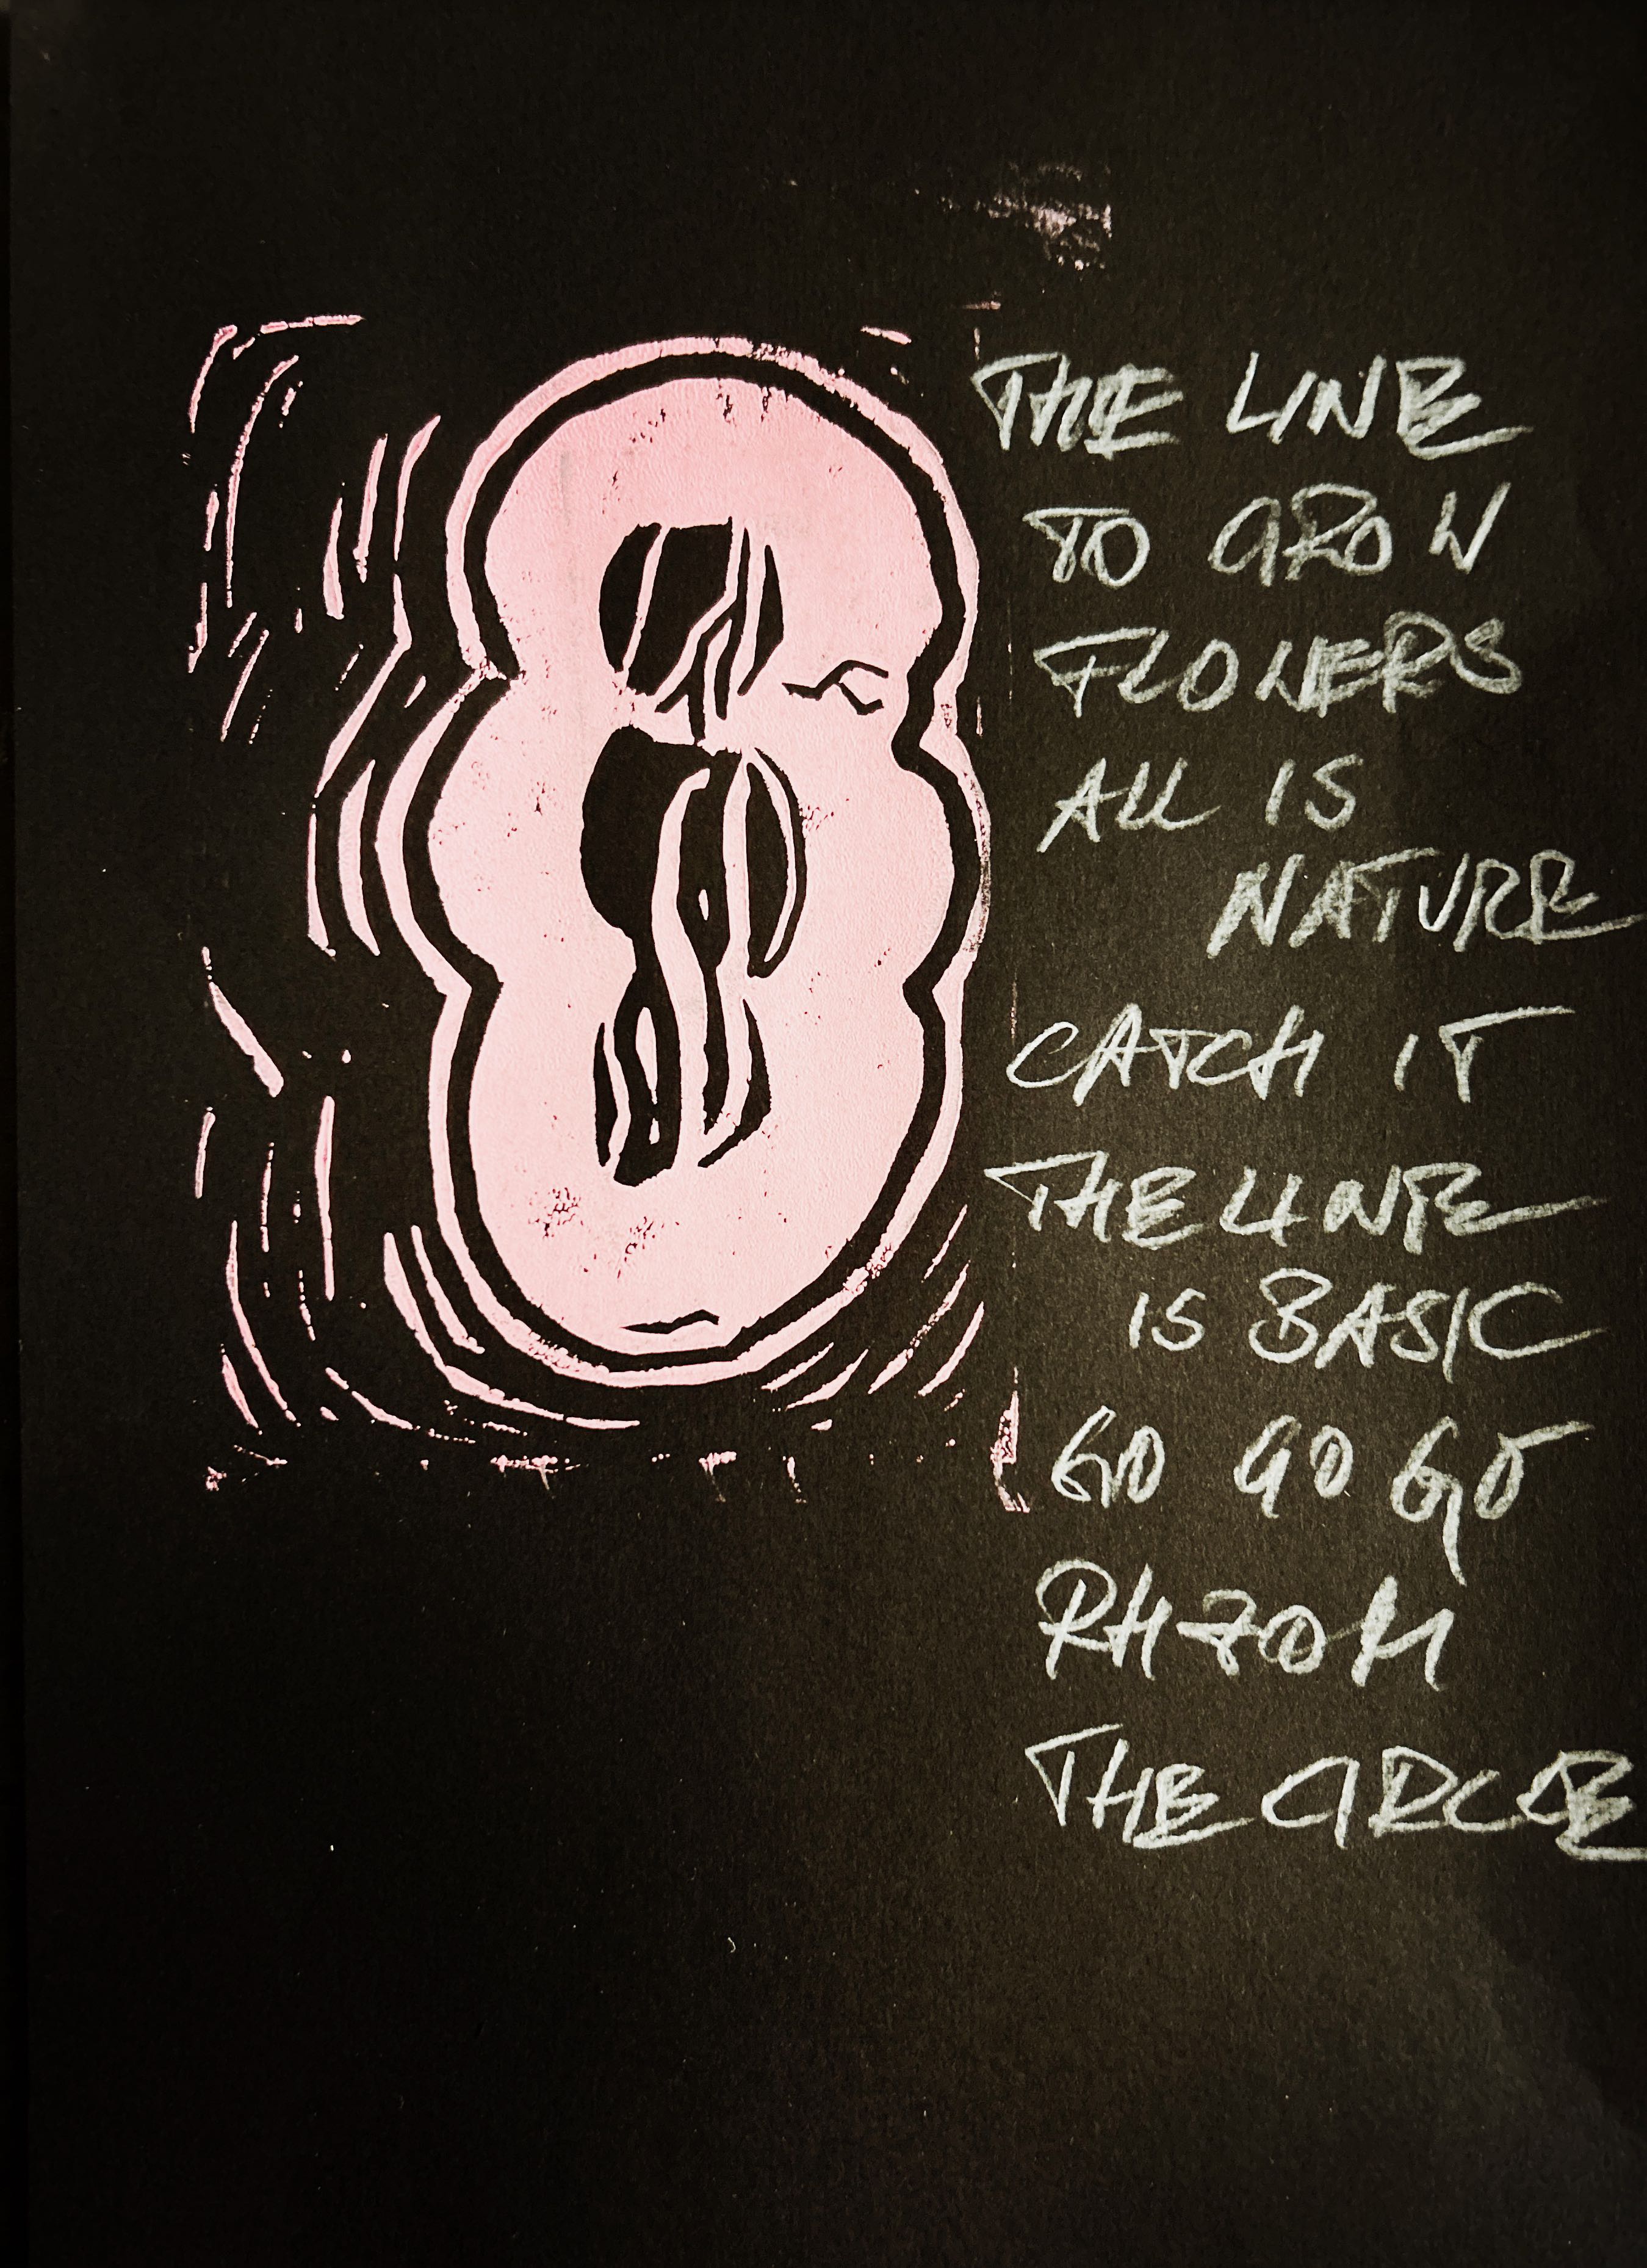 THE LINE
TO GROW
FLOWERS
ALL IS
NATURE
CATCH IT
THE LINE
IS BASIC
GO GO GO
THE CIRCLE